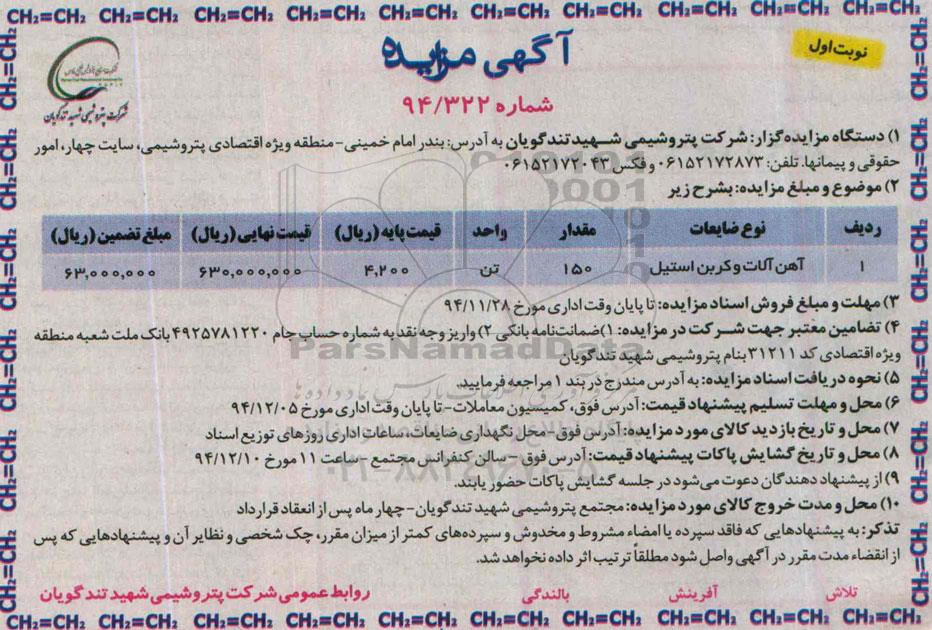 CH₂=CH₂ CH₂=CH₂ CH₂=CH₂ CH₂=CH₂ CH₂=CH₂ CH₂=CH₂ CH₂=CH₂ CH₂=CH₂ CH₂=CH₂ CH₂=CH₂
نوبت اول
آگهی مزایده
شماره ۹۴/۳۲۲
شرکت پتروشیمی شهید تندگویان
۱) دستگاه مزایده‌گزار: شرکت پتروشیمی شهید تندگویان به آدرس: بندر امام خمینی-منطقه ویژه اقتصادی پتروشیمی، سایت چهار، امور
حقوقی و پیمانها. تلفن: ۰۶۱۵۲۱۷۲۸۷۲ و فکس ۰۶۱۵۲۱۷۲۰۴۳
۲) موضوع و مبلغ مزایده: بشرح زیر
ردیف نوع ضایعات مقدار واحد قیمت پایه (ریال) قیمت نهایی (ریال) مبلغ تضمین (ریال)
۱ آهن آلات و کربن استیل ۱۵۰ تن ۴,۲۰۰ ۶۳۰,۰۰۰,۰۰۰ ۶۳,۰۰۰,۰۰۰
۳) مهلت و مبلغ فروش اسناد مزایده: تا پایان وقت اداری مورخ ۹۴/۱۱/۲۸
۴) تضامین معتبر جهت شرکت در مزایده: ۱) ضمانت‌نامه بانکی ۲) واریز وجه نقد به شماره حساب جام ۴۹۲۵۷۸۱۲۲۰ بانک ملت شعبه منطقه
ویژه اقتصادی کد ۳۱۲۱۱ بنام پتروشیمی شهید تندگویان
ParsNamadData
۵) نحوه دریافت اسناد مزایده: به آدرس مندرج در بند ۱ مراجعه فرمایید.
۶) محل و مهلت تسلیم پیشنهاد قیمت: آدرس فوق، کمیسیون معاملات- تا پایان وقت اداری مورخ ۹۴/۱۲/۰۵
۷) محل و تاریخ بازدید کالای مورد مزایده: آدرس فوق-محل نگهداری ضایعات، ساعات اداری روزهای توزیع اسناد
۸) محل و تاریخ گشایش پاکات پیشنهاد قیمت: آدرس فوق - سالن کنفرانس مجتمع - ساعت ۱۱ مورخ ۹۴/۱۲/۱۰
۹) از پیشنهاد دهندگان دعوت می‌شود در جلسه گشایش پاکات حضور یابند.
۱۰) محل و مدت خروج کالای مورد مزایده: مجتمع پتروشیمی شهید تندگویان- چهار ماه پس از انعقاد قرارداد
تذکر: به پیشنهادهایی که فاقد سپرده یا امضاء مشروط و مخدوش و سپرده‌های کمتر از میزان مقرر، چک شخصی و نظایر آن و پیشنهادهایی که پس
از انقضاء مدت مقرر در آگهی واصل شود مطلقاً ترتیب اثر داده نخواهد شد.
تلاش آفرینش بالندگی روابط عمومی شرکت پتروشیمی شهید تندگویان
CH₂=CH₂ CH₂=CH₂ CH₂=CH₂ CH₂=CH₂ CH₂=CH₂ CH₂=CH₂ CH₂=CH₂ CH₂=CH₂ CH₂=CH₂ CH₂=CH₂